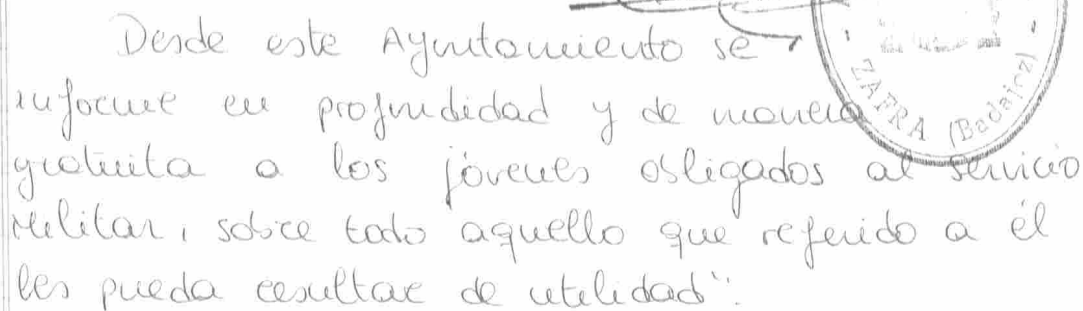 Desde este Ayuntamiento se
informe en profundidad y de manera
gratuita a los jóvenes obligados al servicio
Militar, sobre todo aquello que referido a él
les pueda resultar de utilidad".
ZAFRA (Badajoz)